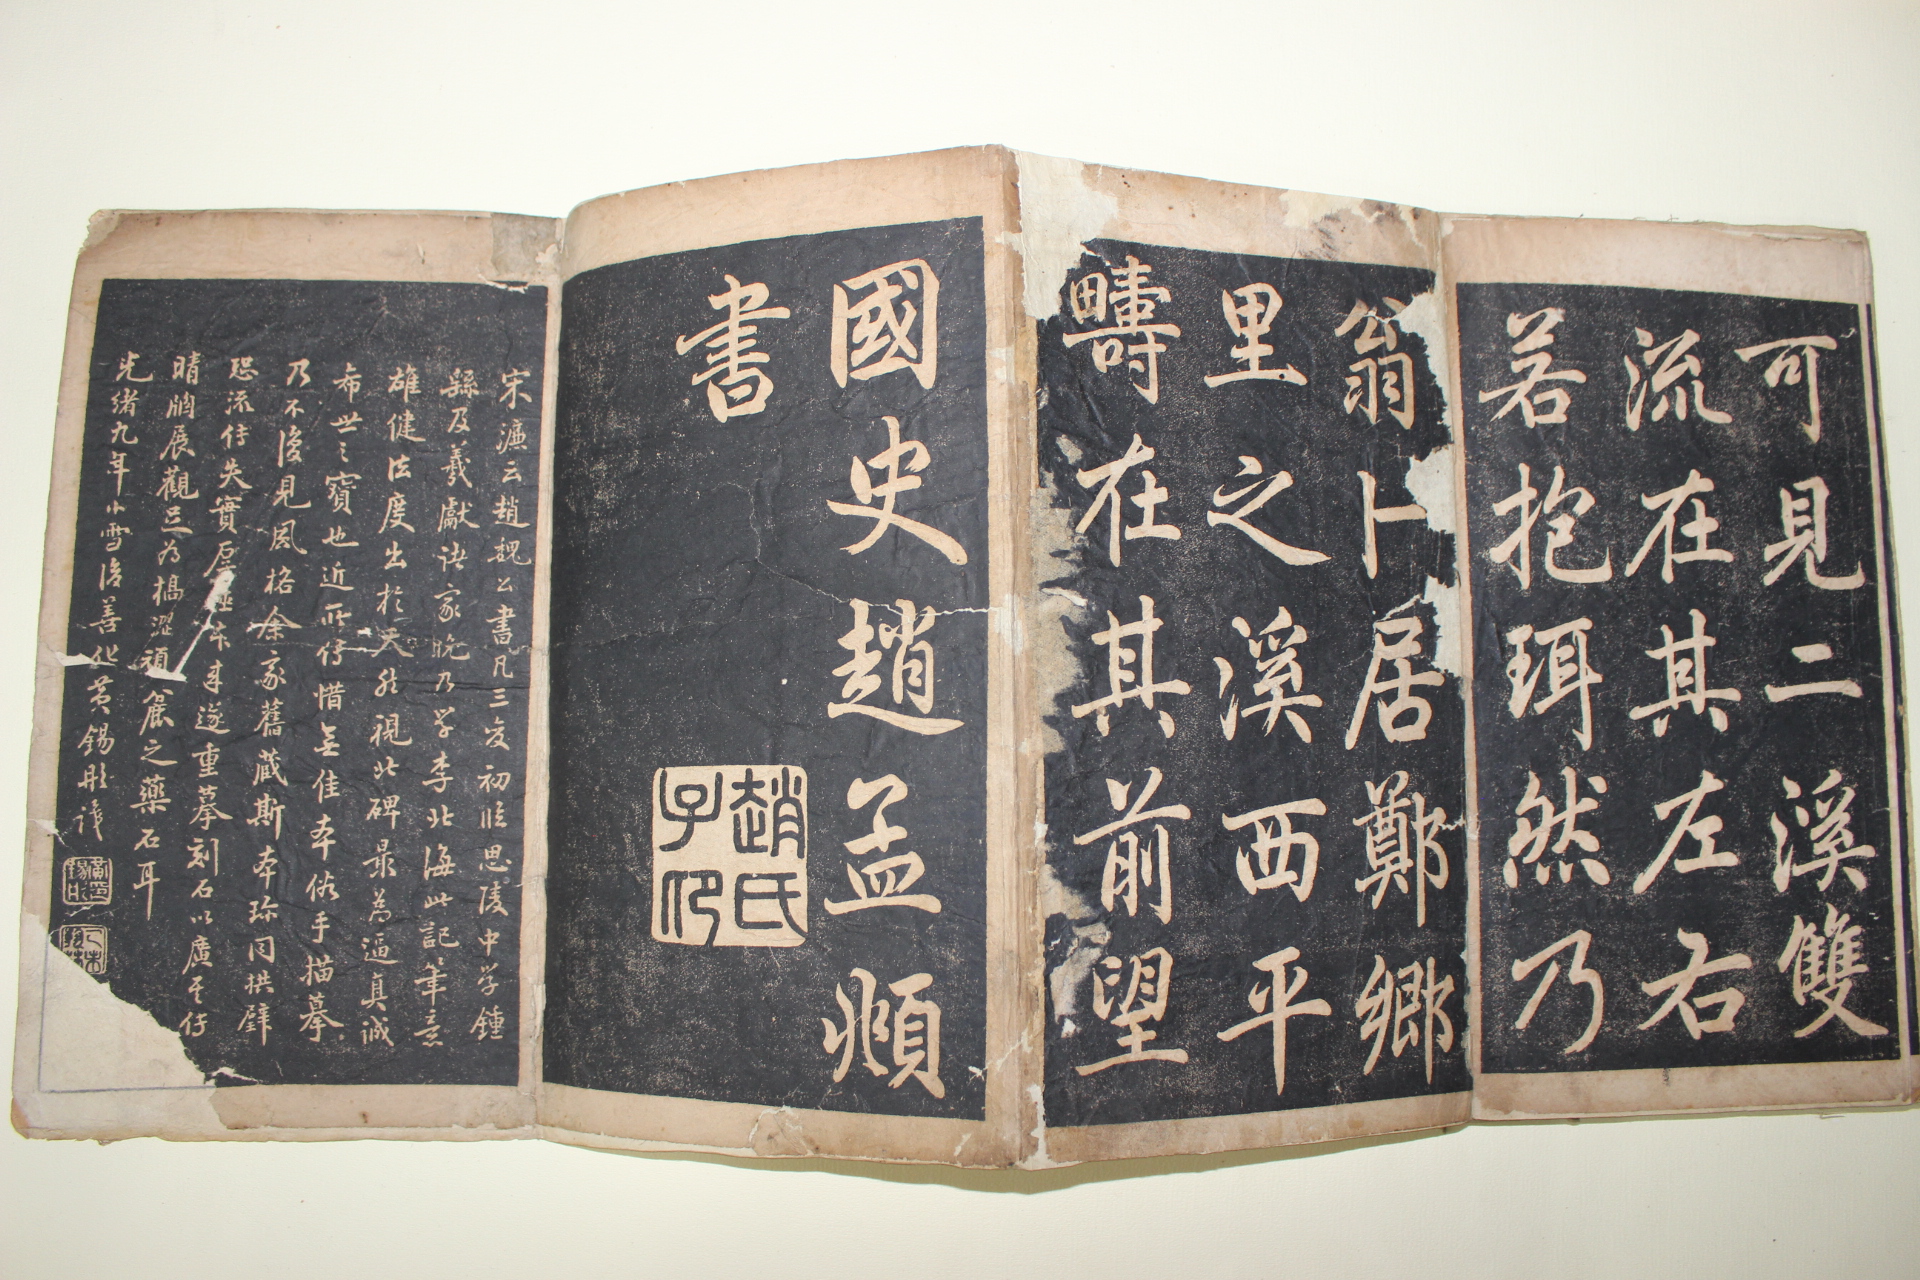 可見二溪雙
流在其左右
若抱珥然乃
翁卜居鄭鄉
里之溪西平
疇在其前望
國史趙孟頫
書
趙氏
子印
宋濂云趙魏公書凡三變初臨思陵中学鍾
繇及羲獻諸家晚乃学李北海此記筆意
雄健法度出於天然視此碑最為逼真誠
希世之寶也近所傳惜無佳本俗手描摹
乃不復見風格余家舊藏斯本珎同拱璧
恐流傳失實屬 重摹刻石以廣其傳
晴牕展觀足為槁澀頑 之藥石耳
光緒九年小雪後善化黃錫彤識